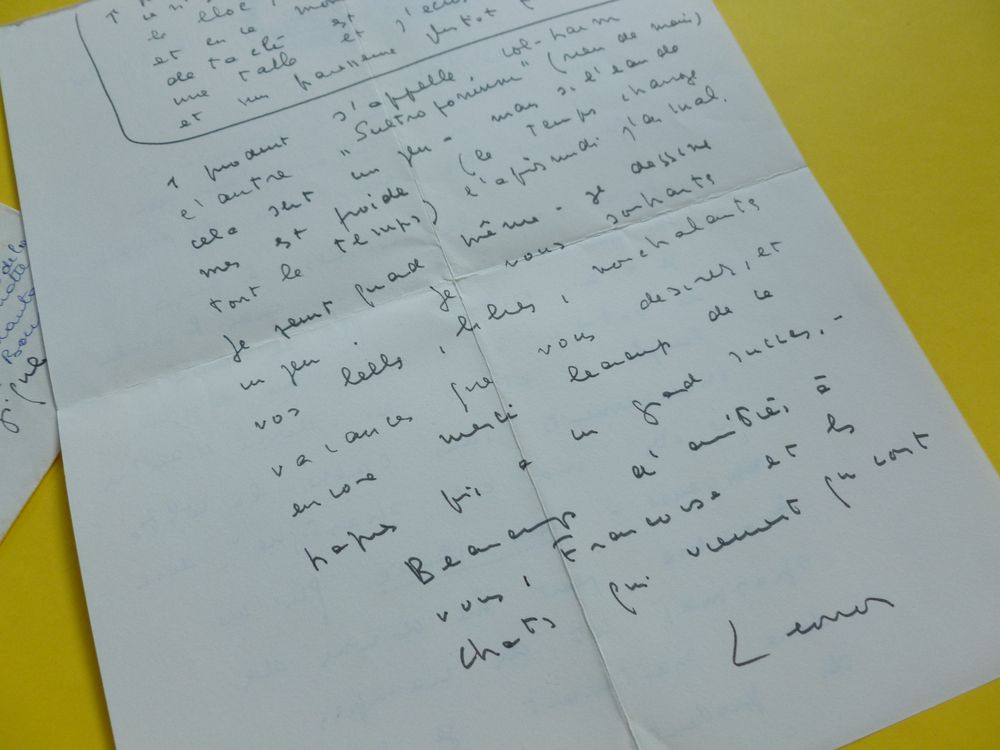 le bloc
et en ce
de taché est
une table et j'écris
et un
1 produit s'appelle, col-ham
l'autre "Sultroponium" (rien de mais)
cela sert un peu - mais si l'eau de
mer est froide (le temps change
tout le temps) l'après midi j'ai mal.
Je peint quand même - je dessine
un peu. Je vous souhaite
vos belles, libres, nonchalantes
vacances que vous desirez, et
encore merci beaucoup de ce
papier qui a un grand succès.-
Beaucoup d'amitiés à
vous, Françoise et les
chats qui viennent qui vont